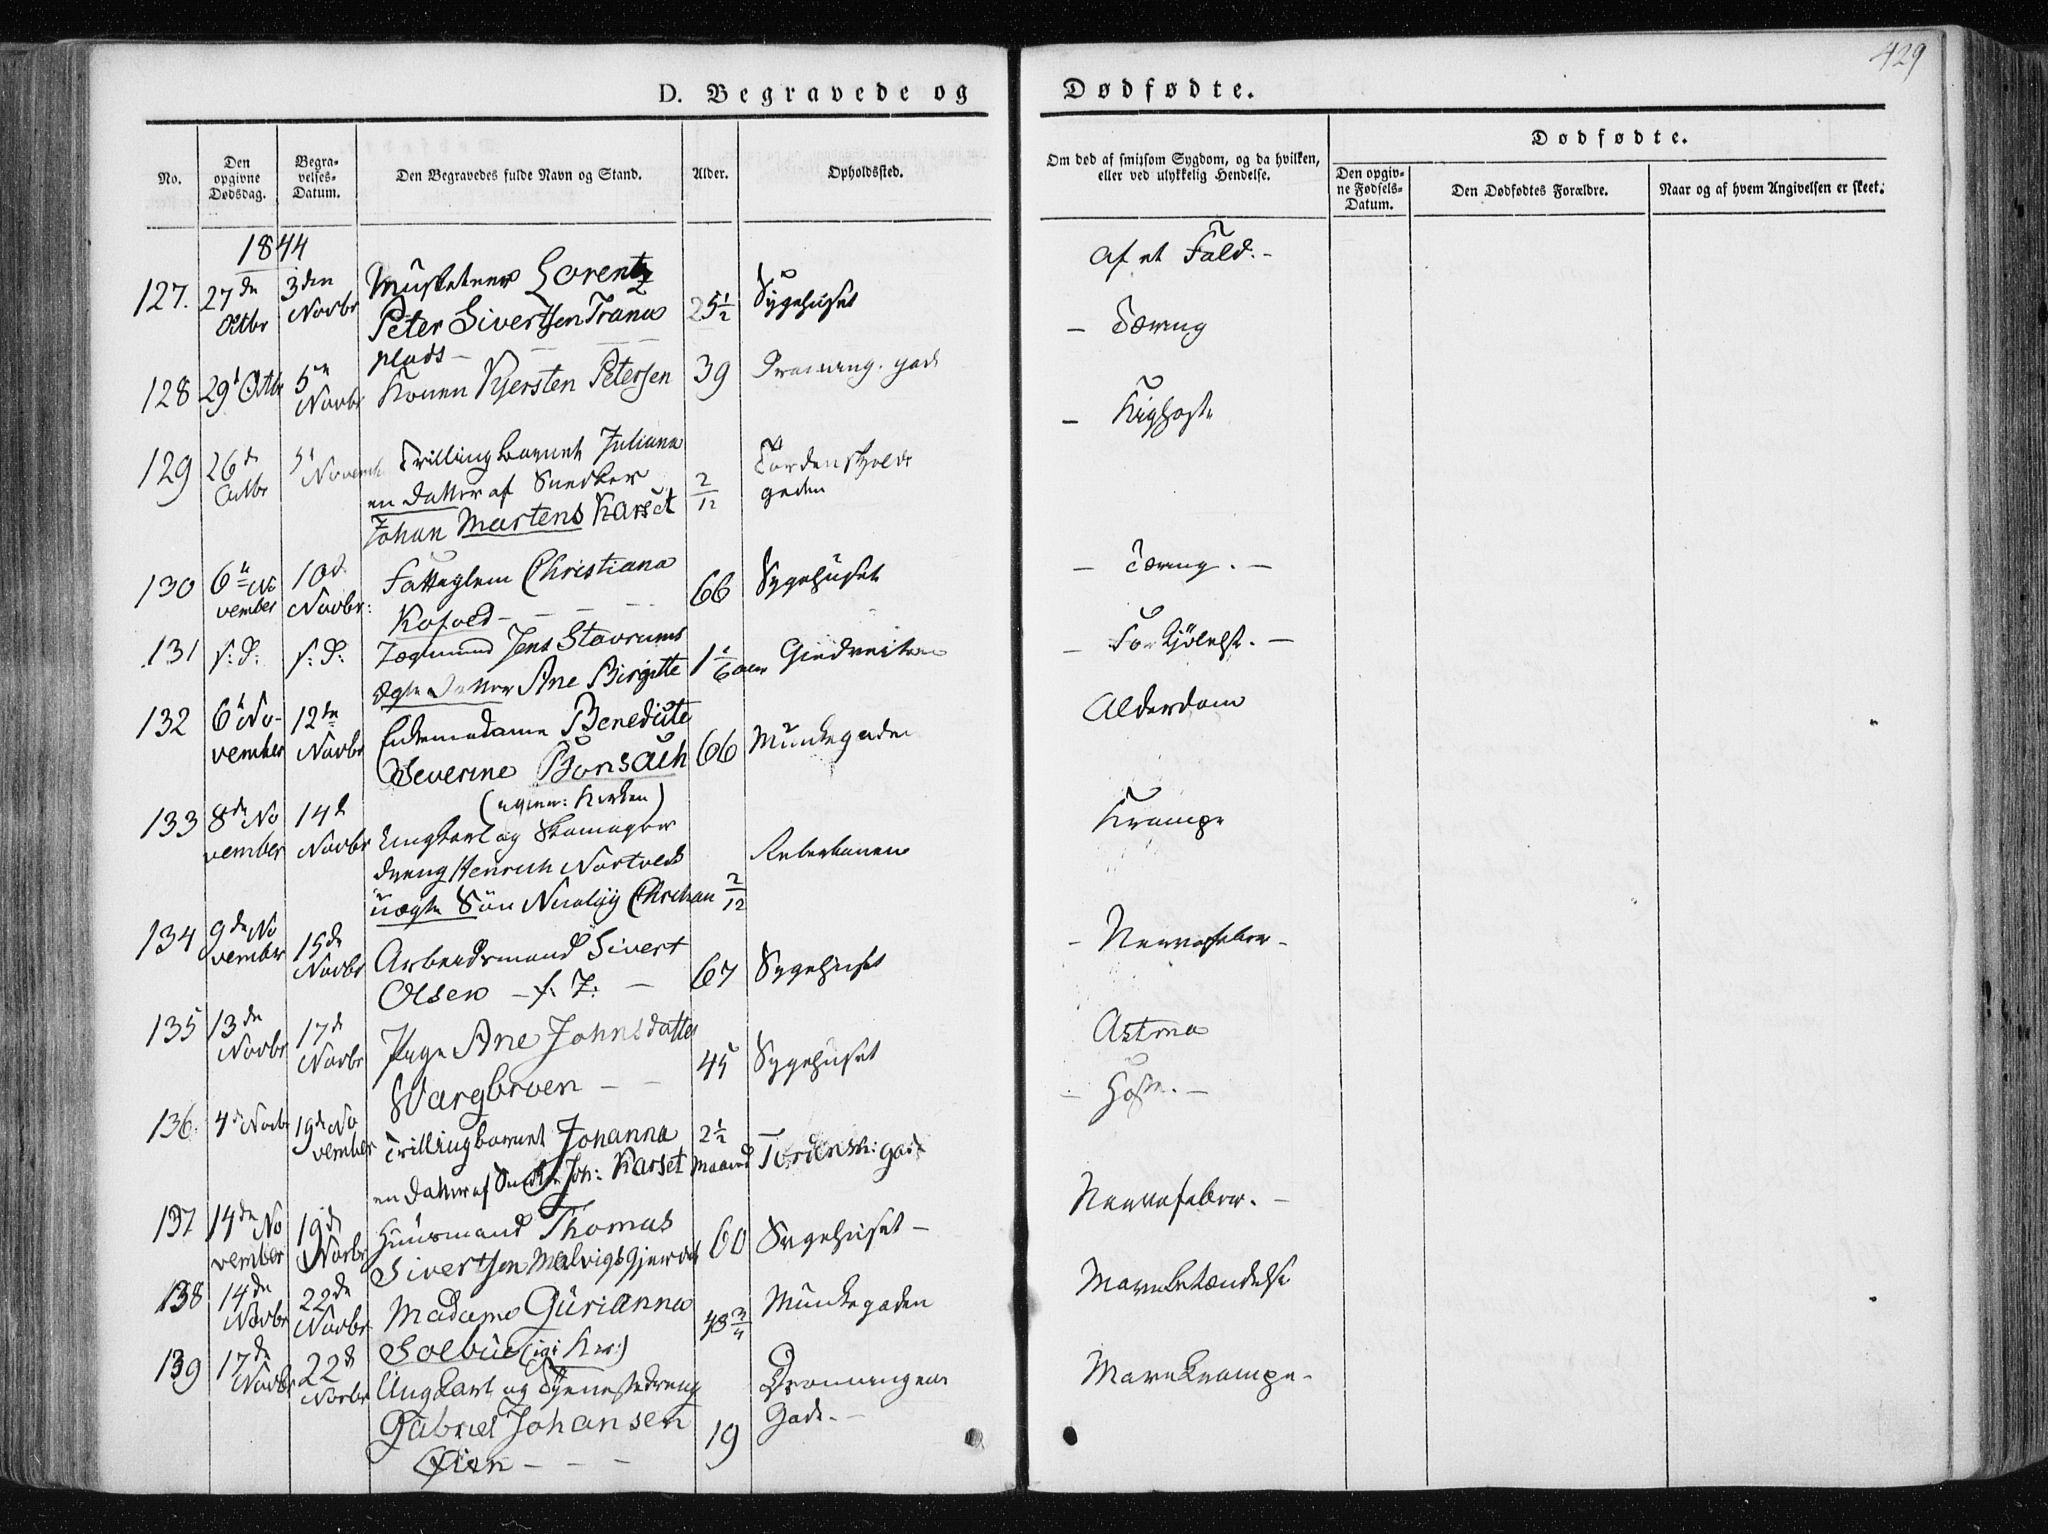 429
D. Begravede og Dødfødte.
No.
Den opgivne Dødsdag.
Begravelses-Datum.
Den Begravedes fulde Navn og Stand.
Alder.
Opholdssted.
Om død af smitsom Sygdom, og da hvilken,
eller ved ulykkelig Hendelse.
Dødfødte.
Den opgivne Fødsels-Datum.
Den Dødfødtes Forældre.
Naar og af hvem Angivelsen er skeet.
1844
127. 27de Octbr 3den Novbr Musketeer Lorentz
Peter Sivertsen Trana 25½ Sygehuset
plads –
af et Fald. –
128 29' Octbr 5te Novbr Konen Kjersten Petersen 39 Dronning. gade
– Tæring
129 26de Octbr 5' Novemb Trillingbarnet Juliana
en Datter af Snedker
Johan Martens Karset 2/12 Tordenskjolds
gaden
– Kighoste
130 6te November 10d. Novbr: Fattiglem Christiana
Kofoed – 66 Sygehuset
– Tæring. –
131 s: d: s: d: Jens Stavrums
ægte Datter Ane Birgitte
– Forkjølelse. –
132 6te November 12te Novbr Enkemadame Benedicte
Severine 66 Munkegaden
Alderdom
133 8de November 14d Novbr Ungkarl og Skomager
dreng Henrich Nortveds
uægte Søn Christian 2/12 Reberbanen
Krampe
134 9de November 15de Novbr Arbeidsmand Sivert
Olsen – f. 67 Sygehuset
– Nervefeber –
135 13de Novbr 17d Novbr Pige Ane Johnsdatter
45 Sygehuset
Astma
136. 4de Novbr 19de November Trillingbarnet Johanna 2½
en Datter af Snedker Joh: Karset Maaned Tordensk: gade
– Hoste. –
137 14de November 19de Novbr Huusmand Thomas
Sivertsen Malvigsgjerdet 60 Sygehuset –
Nervefeber. –
138 14de Novbr 22de Novbr Madame Gurianna
Solbue 48¾ Munkegaden
Mavebetændelse
139 17de Novbr 22d Novbr Ungkarl og Tjenestedreng
Gabriel Johansen 19 Dronningens
Gade. –
Øien – – –
Mavekrampe –